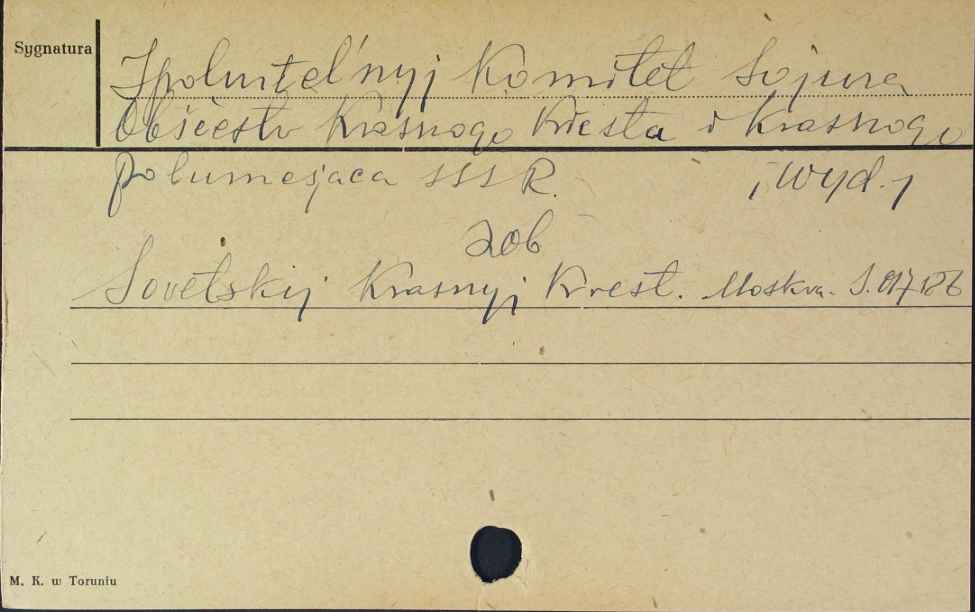 Sygnatura
Ispolnitel'nyj Komitet Sojuza
Obščestv Krasnogo Kresta i Krasnogo
polumesjaca SSSR. , Wyd. ,
zob
Sovetskij Krasnyj Krest. Moskva.
M. K. w Toruniu